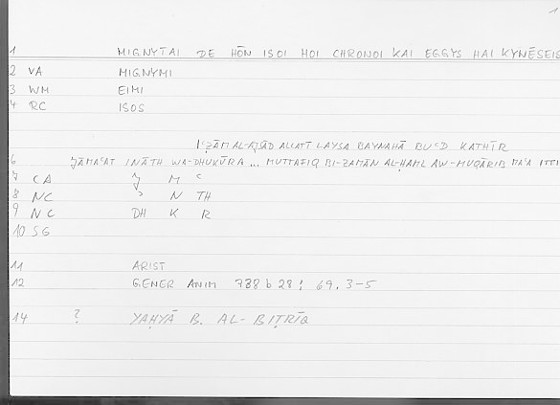 1
1 MIGNYTAI DE HŌN ISOI HOI CHRONOI KAI EGGYS HAI KYNĒSEIS
2 VA MIGNYMI
3 WM EIMI
4 RC ISOS
LAYSA BAYNAHĀ BUʿD KATHĪR
6 ǦĀMAʿAT INĀTH WA-DHUKŪRA ... MUTTAFIQ BI-ZAMĀN AL-ḤAML AW-MUQĀRIB
7 CA Ǧ M ʿ
8 NC ʾ N TH
9 NC DH K R
10 SG
11 ARIST
12 GENER ANIM 738 b 28 ; 69, 3-5
14 ? YAḤYĀ B. AL-BIṬRĪQ